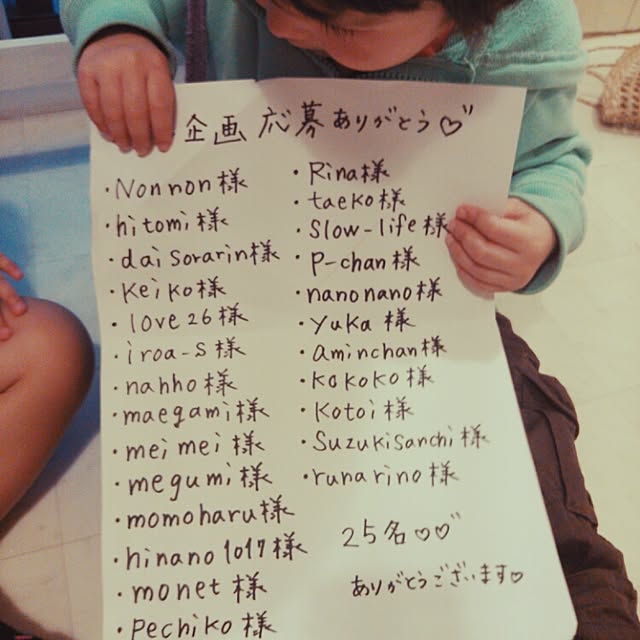 企画応募ありがとう♡
・Nonnon様
・hitomi様
・daisorarin様
・keiko様
・love26様
・iroa-s様
・nahho様
・maegami様
・meimei様
・megumi様
・momoharu様
・hinano1017様
・monet様
・pechiko様
・Rina様
・taeko様
・slow-life様
・P-chan様
・nanonano様
・yuka様
・aminchan様
・kokoko様
・kotoi様
・suzukisanchi様
・runarino様
25名♡♡
ありがとうございます♡